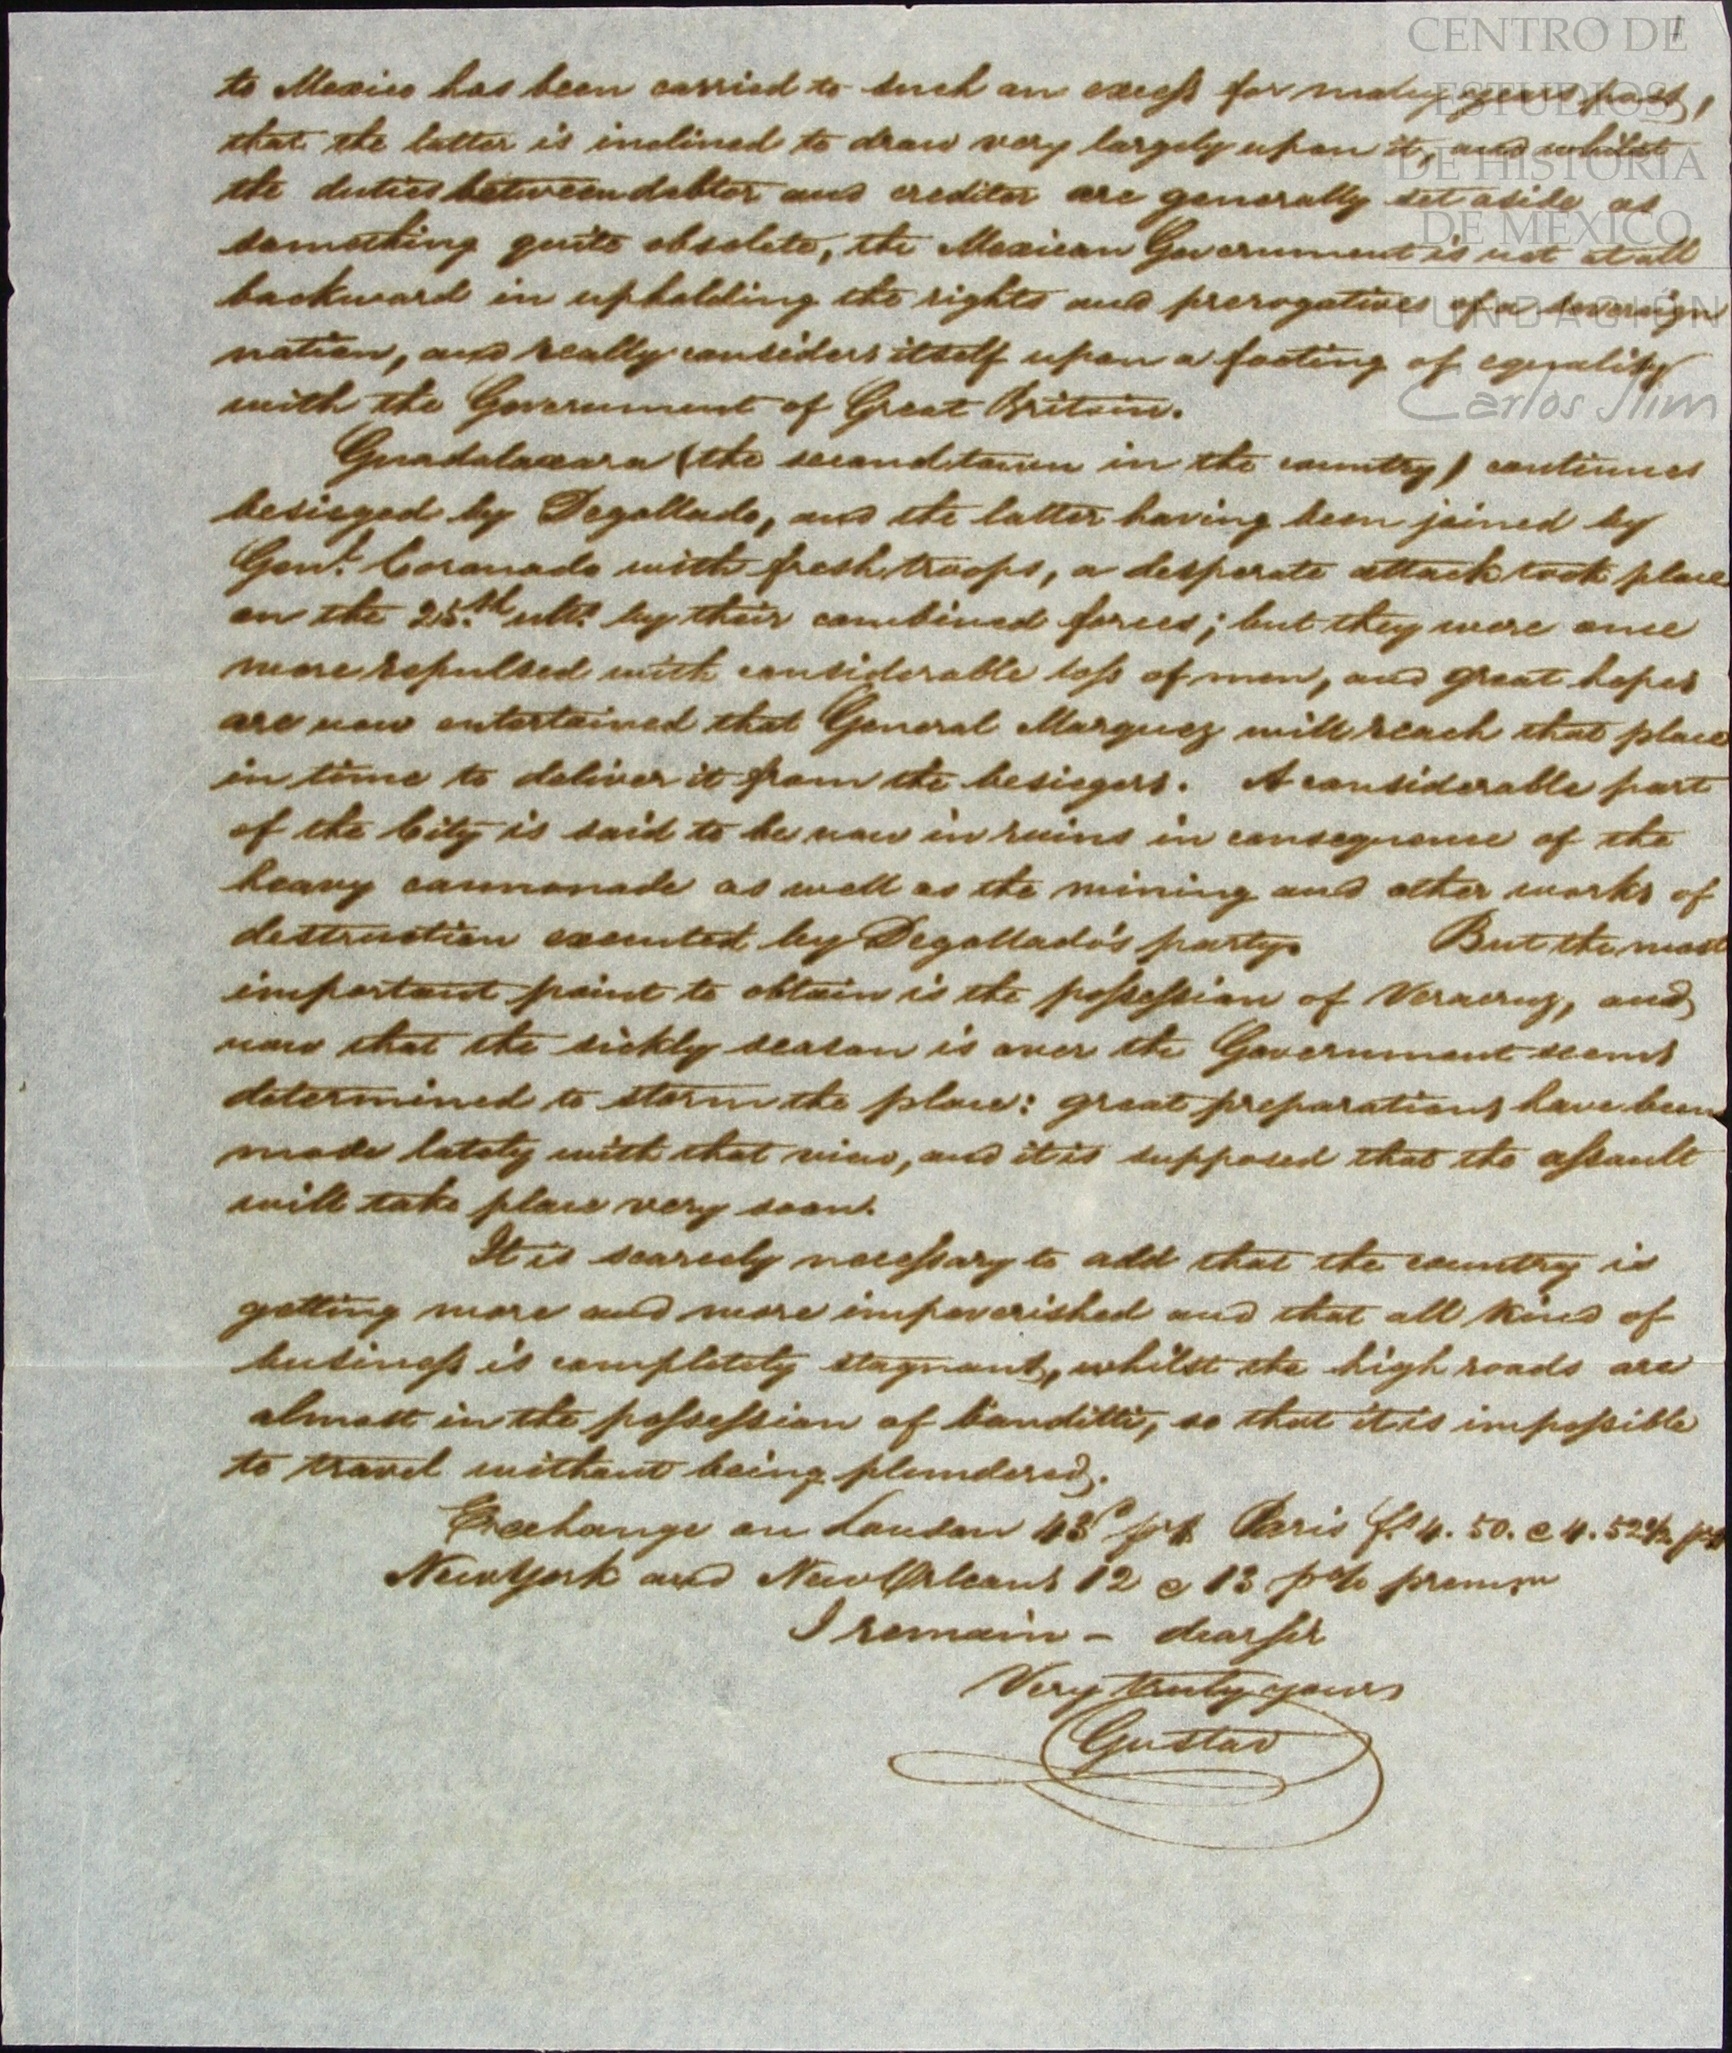 CENTRO DE
ESTUDIOS
DE HISTORIA
DE MEXICO
FUNDACIÓN
Carlos Slim
to Mexico has been carried to such an excess for many years past,
that the latter is inclined to draw very largely upon it, and whilst
the duties between debtor and creditor are generally set aside as
something quite obsolete, the Mexican Government is not at all
backward in upholding the rights and prerogatives of a sovereign
nation, and really considers itself upon a footing of equality
with the Government of Great Britain.
Guadalaxara (the second town in the country) continues
besieged by Degollado, and the latter having been joined by
Genl. Coronado with fresh troops, a desperate attack took place
on the 25th. ulto. by their combined forces; but they were once
more repulsed with considerable loss of men, and great hopes
are now entertained that General Marquez will reach that place
in time to deliver it from the besiegers. A considerable part
of the City is said to be now in ruins in consequence of the
heavy cannonade as well as the mining and other works of
destruction executed by Degollado's party. But the most
important point to obtain is the possession of Veracruz, and
now that the sickly season is over the Government seems
determined to storm the place: great preparations have been
made lately with that view, and it is supposed that the assault
will take place very soon.
It is scarcely necessary to add that the country is
getting more and more impoverished and that all kind of
business is completely stagnant, whilst the high roads are
almost in the possession of banditti, so that it is impossible
to travel without being plundered.
Exchange on London 43 Paris fs. 4.50. @ 4.52½
New York and New Orleans 12 @ 13 p% premm
I remain - dear sir
Very truly yours
Gustav